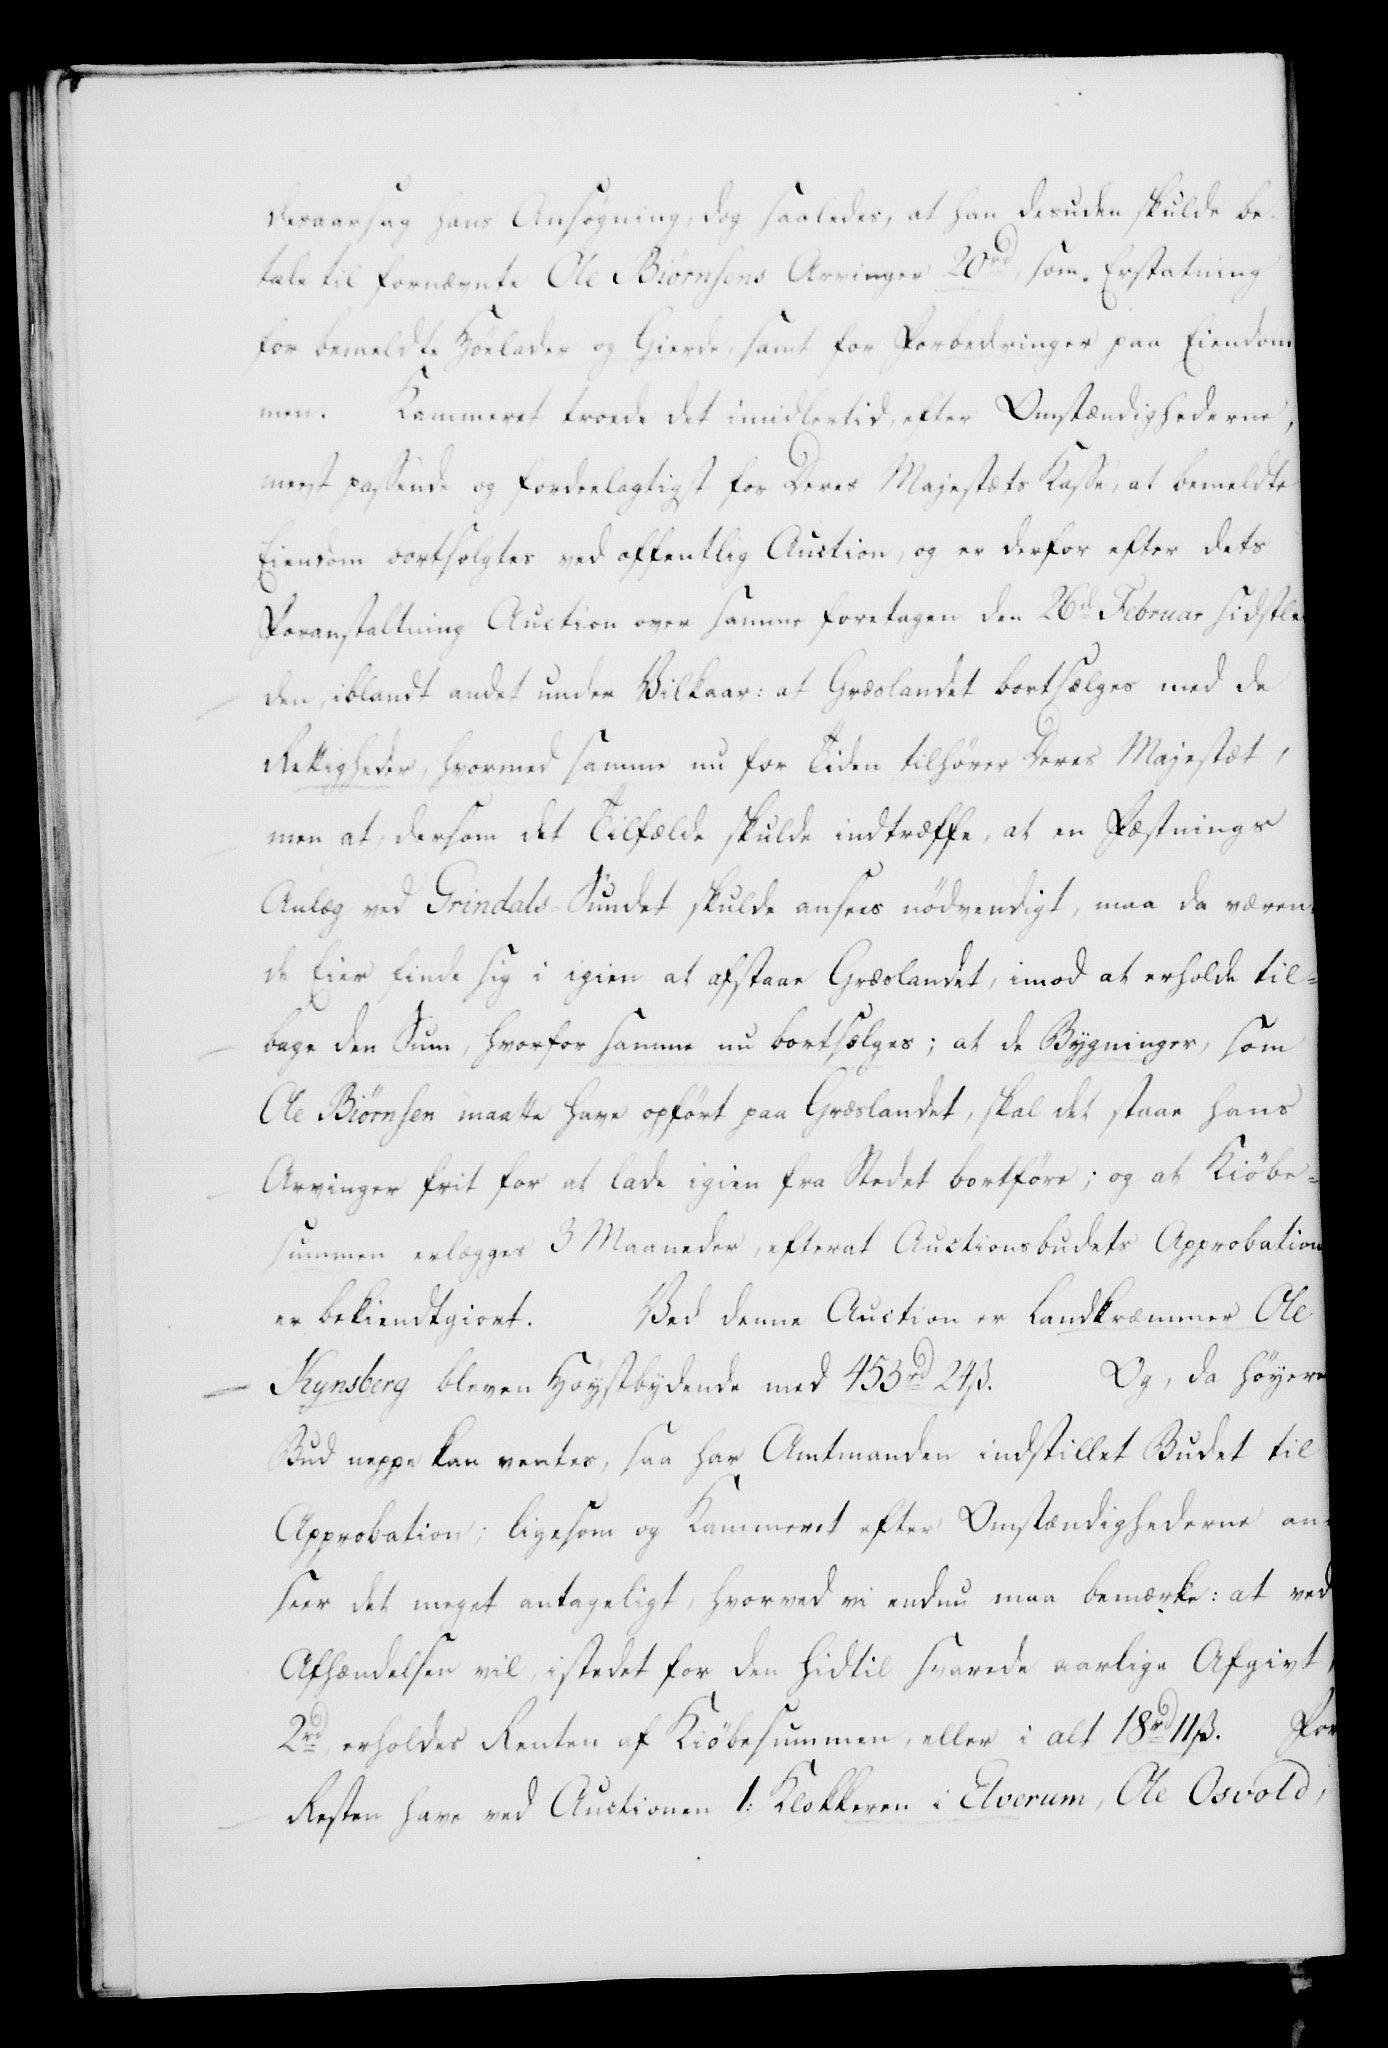 desaarsag hans Ansögning, dog saaledes, at han desuden skulde be-
tale til fornævnte Ole Biörnsens Arvinger 20rd, som Erstatning
for bemeldte Höelader og Gierde, samt for Forbedringer paa Eiendom
men. Kammeret troede det imidlertid, efter Omstændighederne,
meest passende og fordeelagtigst for Deres Majestæts Kasse, at bemeldte
Eiendom bortsolgtes ved offentlig Auction, og er derfor efter dets
Foranstaltning Auction over samme foretagen den 26de Februar sidstle
den, iblandt andet under Vilkaar: at Græslandet bortsælges med de
Rettigheder, hvormed samme nu for Tiden tilhörer Deres Majestæt,
men at, dersom det Tilfælde skulde indtræffe, at en Fæstnings
Anlæg ved Grindals-Sundet skulde ansees nödvendigt, maa da væren-
de Eier finde sig i igien at afstaae Græslandet, imod at erholde til=
bage den Sum, hvorfor samme nu bortsælges; at de Bygninger, som
Ole Biörnsen maatte have opfört paa Græslandet, skal det staae hans
Arvinger frit for at lade igien fra Stedet bortföre; og at Kiöbe=
summen erlægges 3 Maaneder, efterat Auctionsbudets Approbation
er bekiendtgiort. Ved denne Auction er Landkræmmer Ole
Kynsberg bleven Höystbydende med 453rd 24ß. Og, da höyere
Bud neppe kan ventes, saa har Amtmanden indstillet Budet til
Approbation; ligesom og Kammeret efter Omstændighederne an-
seer det meget antageligt, hvorved vi endnu maa bemærke: at ved
Afhændelsen vil, istedet for den hidtil svarede aarlige Afgivt,
2rd, erholdes Renten af Kiöbesummen, eller i alt 18rd 11ß. For
Resten have ved Auctionen 1: Klokkeren i Elverum, Ole Osvold,